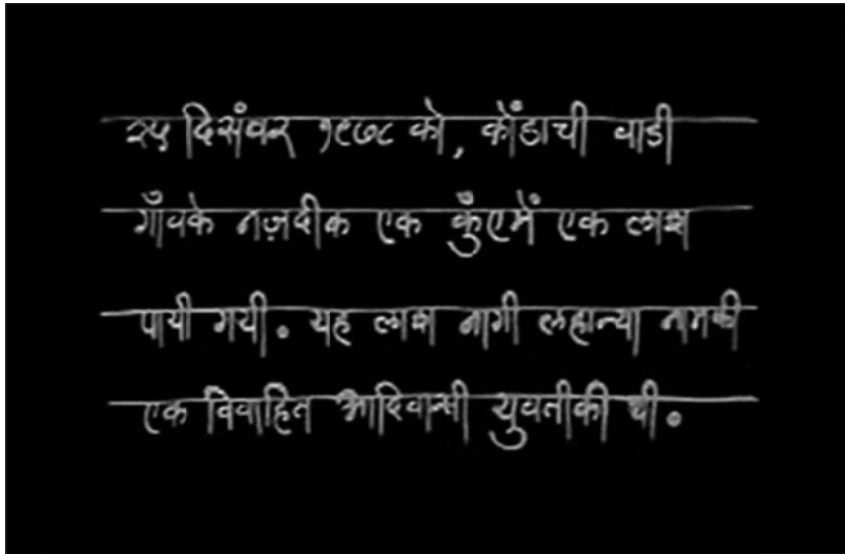 २५ दिसंबर १९७८ को, कोंडाची वाडी
गाँवके नज़दीक एक कुँएमें एक लाश
पायी गयी. यह लाश नागी लहान्या नामकी
एक विवाहित आदिवासी युवतीकी थी.